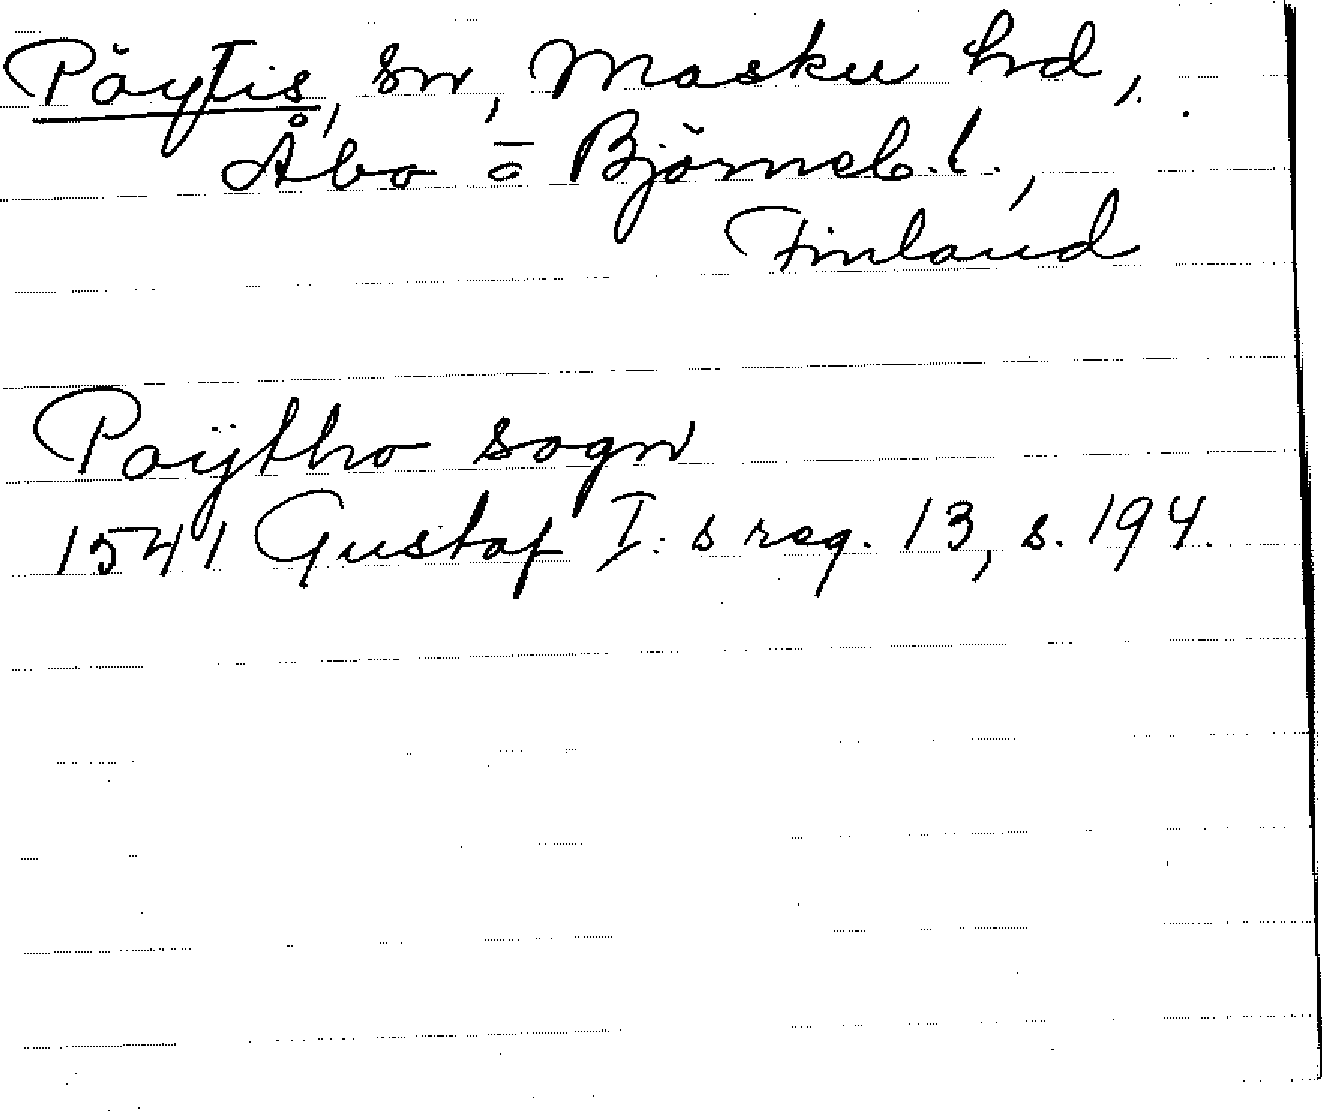 Pöytis, sn, Masku hd,
Åbo o Björneb. l.,
Finland
Poÿtho sogn
1541 Gustaf I:s reg. 13, s. 194.